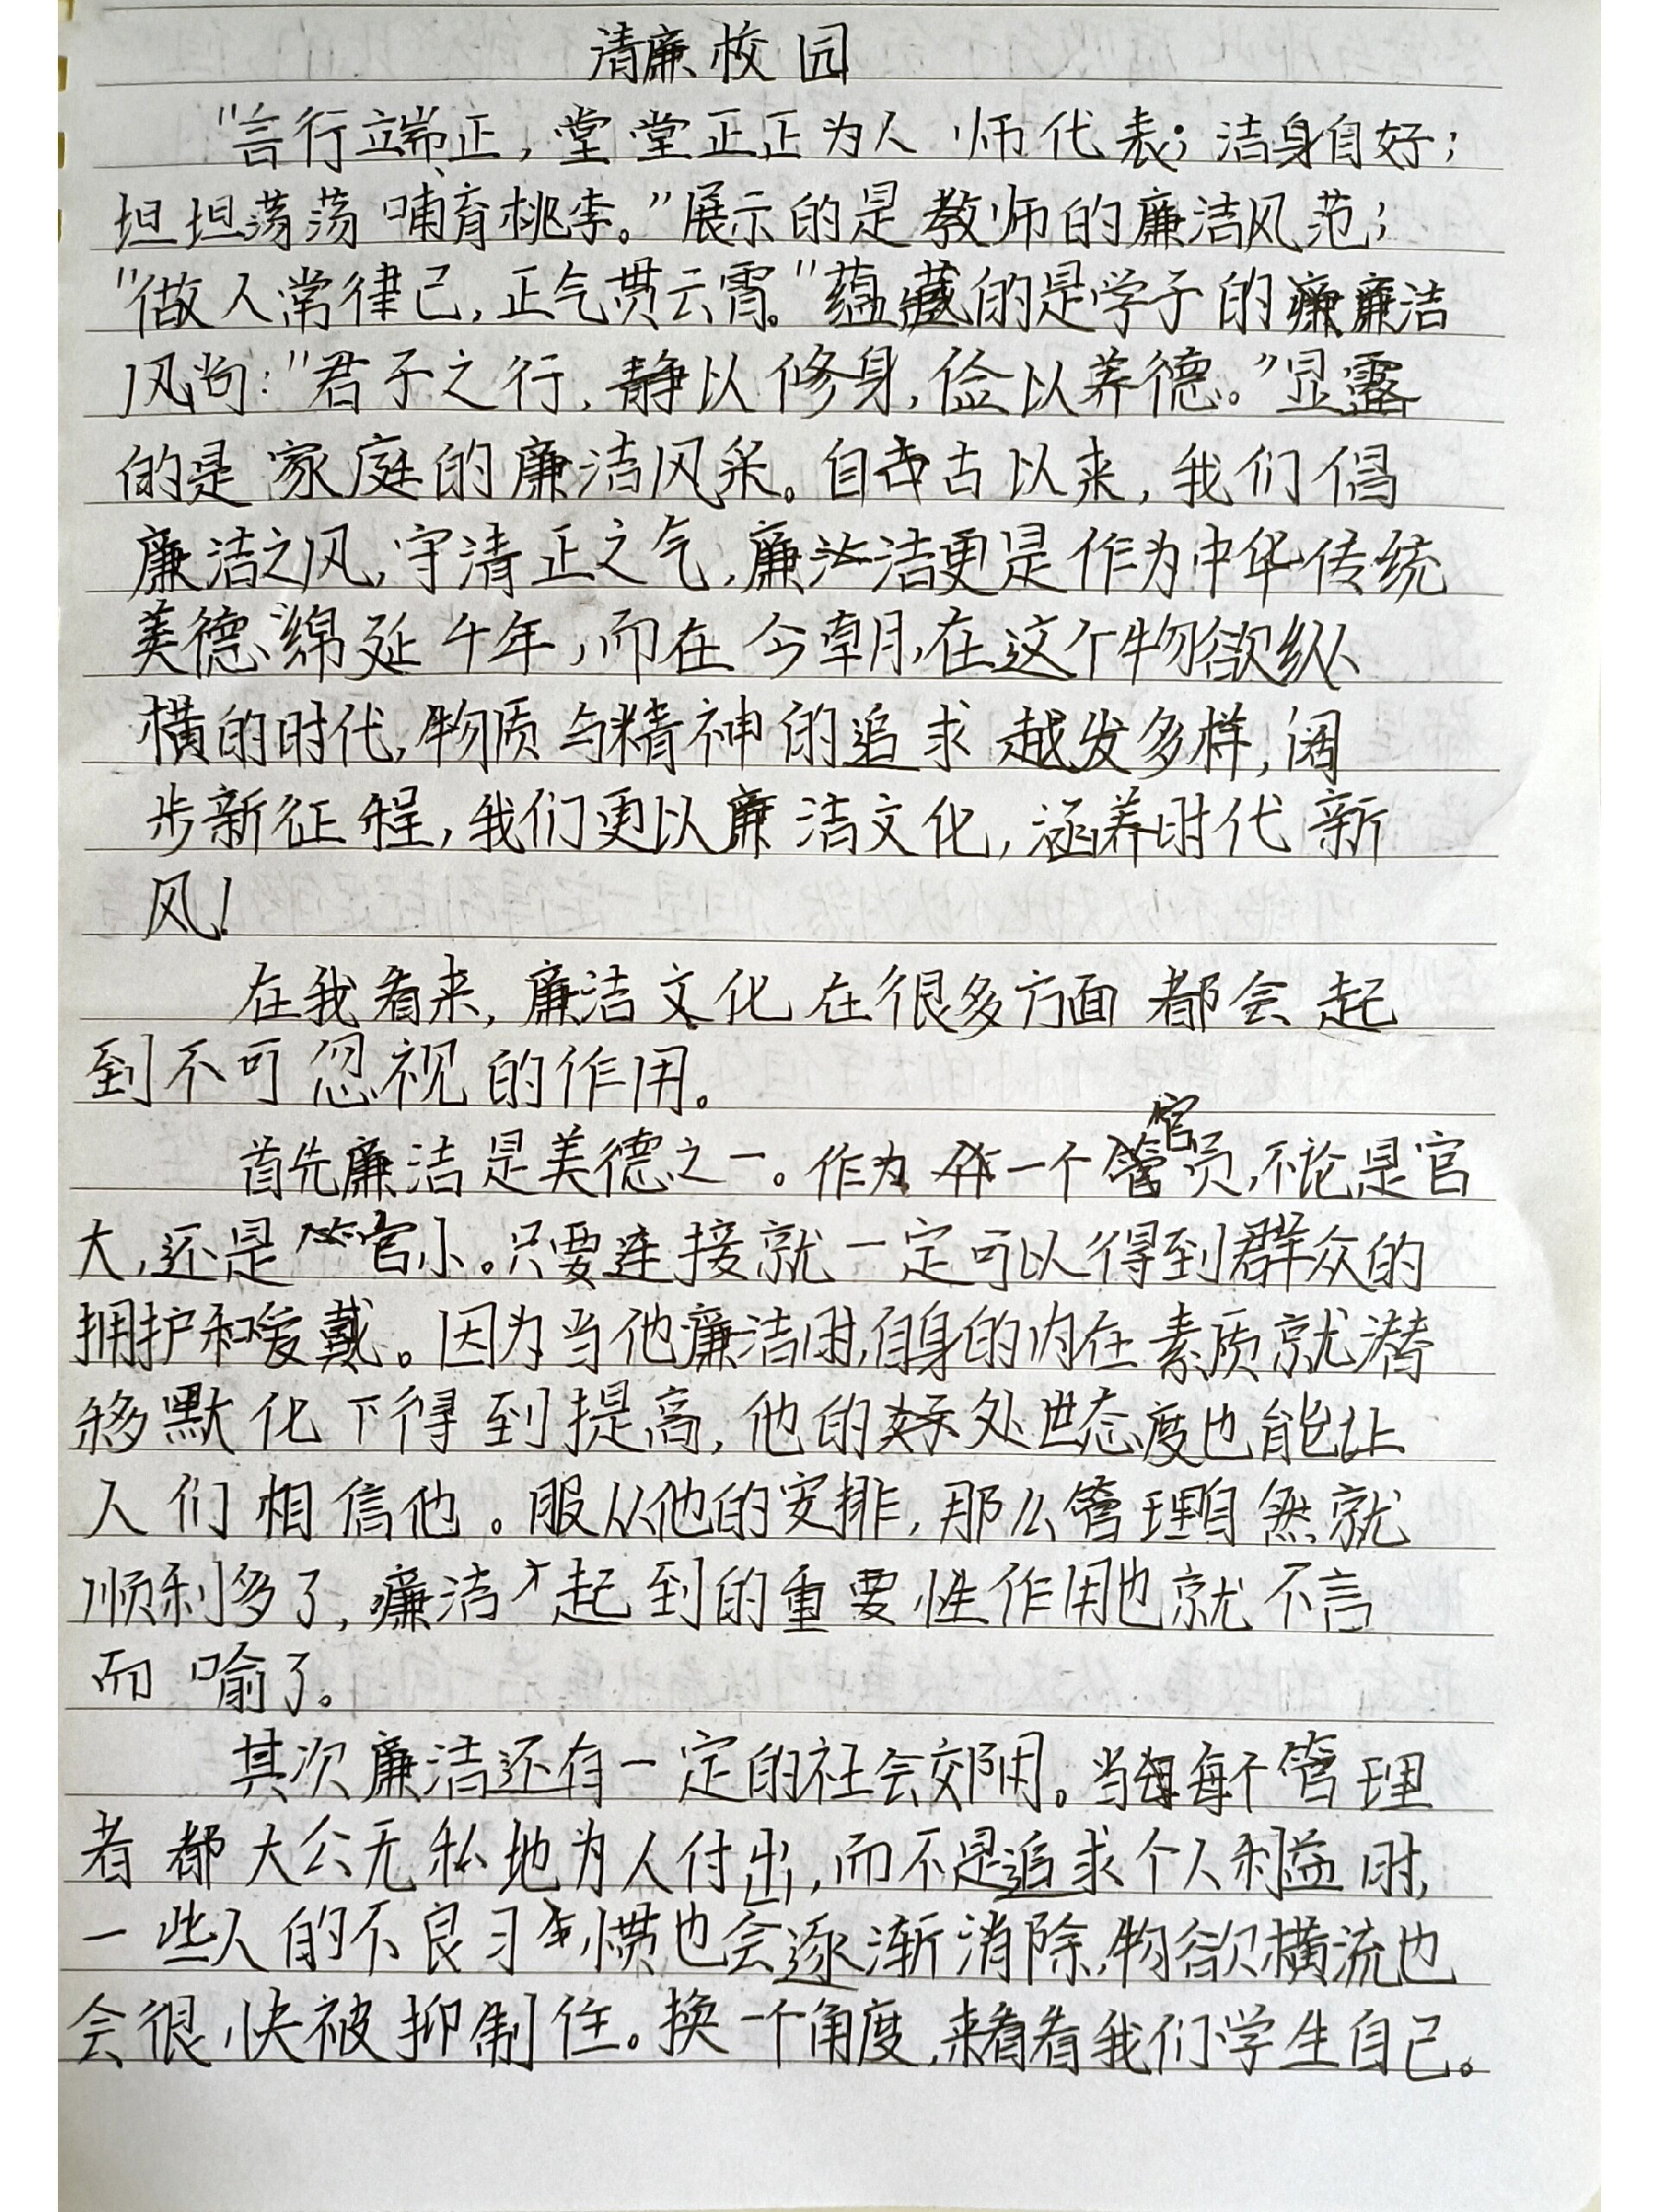 清廉校园
"言行端正，堂堂正正为人师代表；洁身自好；
坦坦荡荡哺育桃李。"展示的是教师的廉洁风范；
"做人常律己，正气贯云霄。"蕴藏的是学子的廉洁
风尚："君子之行，静以修身，俭以养德。"显露
的是家庭的廉洁风采。自古以来，我们倡
廉洁之风，守清正之气，廉洁更是作为中华传统
美德，绵延千年，而在今朝，在这个物欲纵
横的时代，物质与精神的追求越发多样，阔
步新征程，我们更以廉洁文化，涵养时代新
风！
在我看来，廉洁文化在很多方面都会起
到不可忽视的作用。
首先廉洁是美德之一。作为一个官员，不论是官
大，还是官小。只要连接就一定可以得到群众的
拥护和爱戴。因为当他廉洁时，自身的内在素质就潜
移默化下得到提高，他的处世态度也能让
人们相信他。服从他的安排，那么管理自然就
顺利多了，廉洁才起到的重要性作用也就不言
而喻了。
其次廉洁还有一定的社会作用。当每个管理
者都大公无私地为人付出，而不是追求个人利益时，
一些人的不良习惯也会逐渐消除，物欲横流也
会很快被抑制住。换一个角度，来看看我们学生自己。